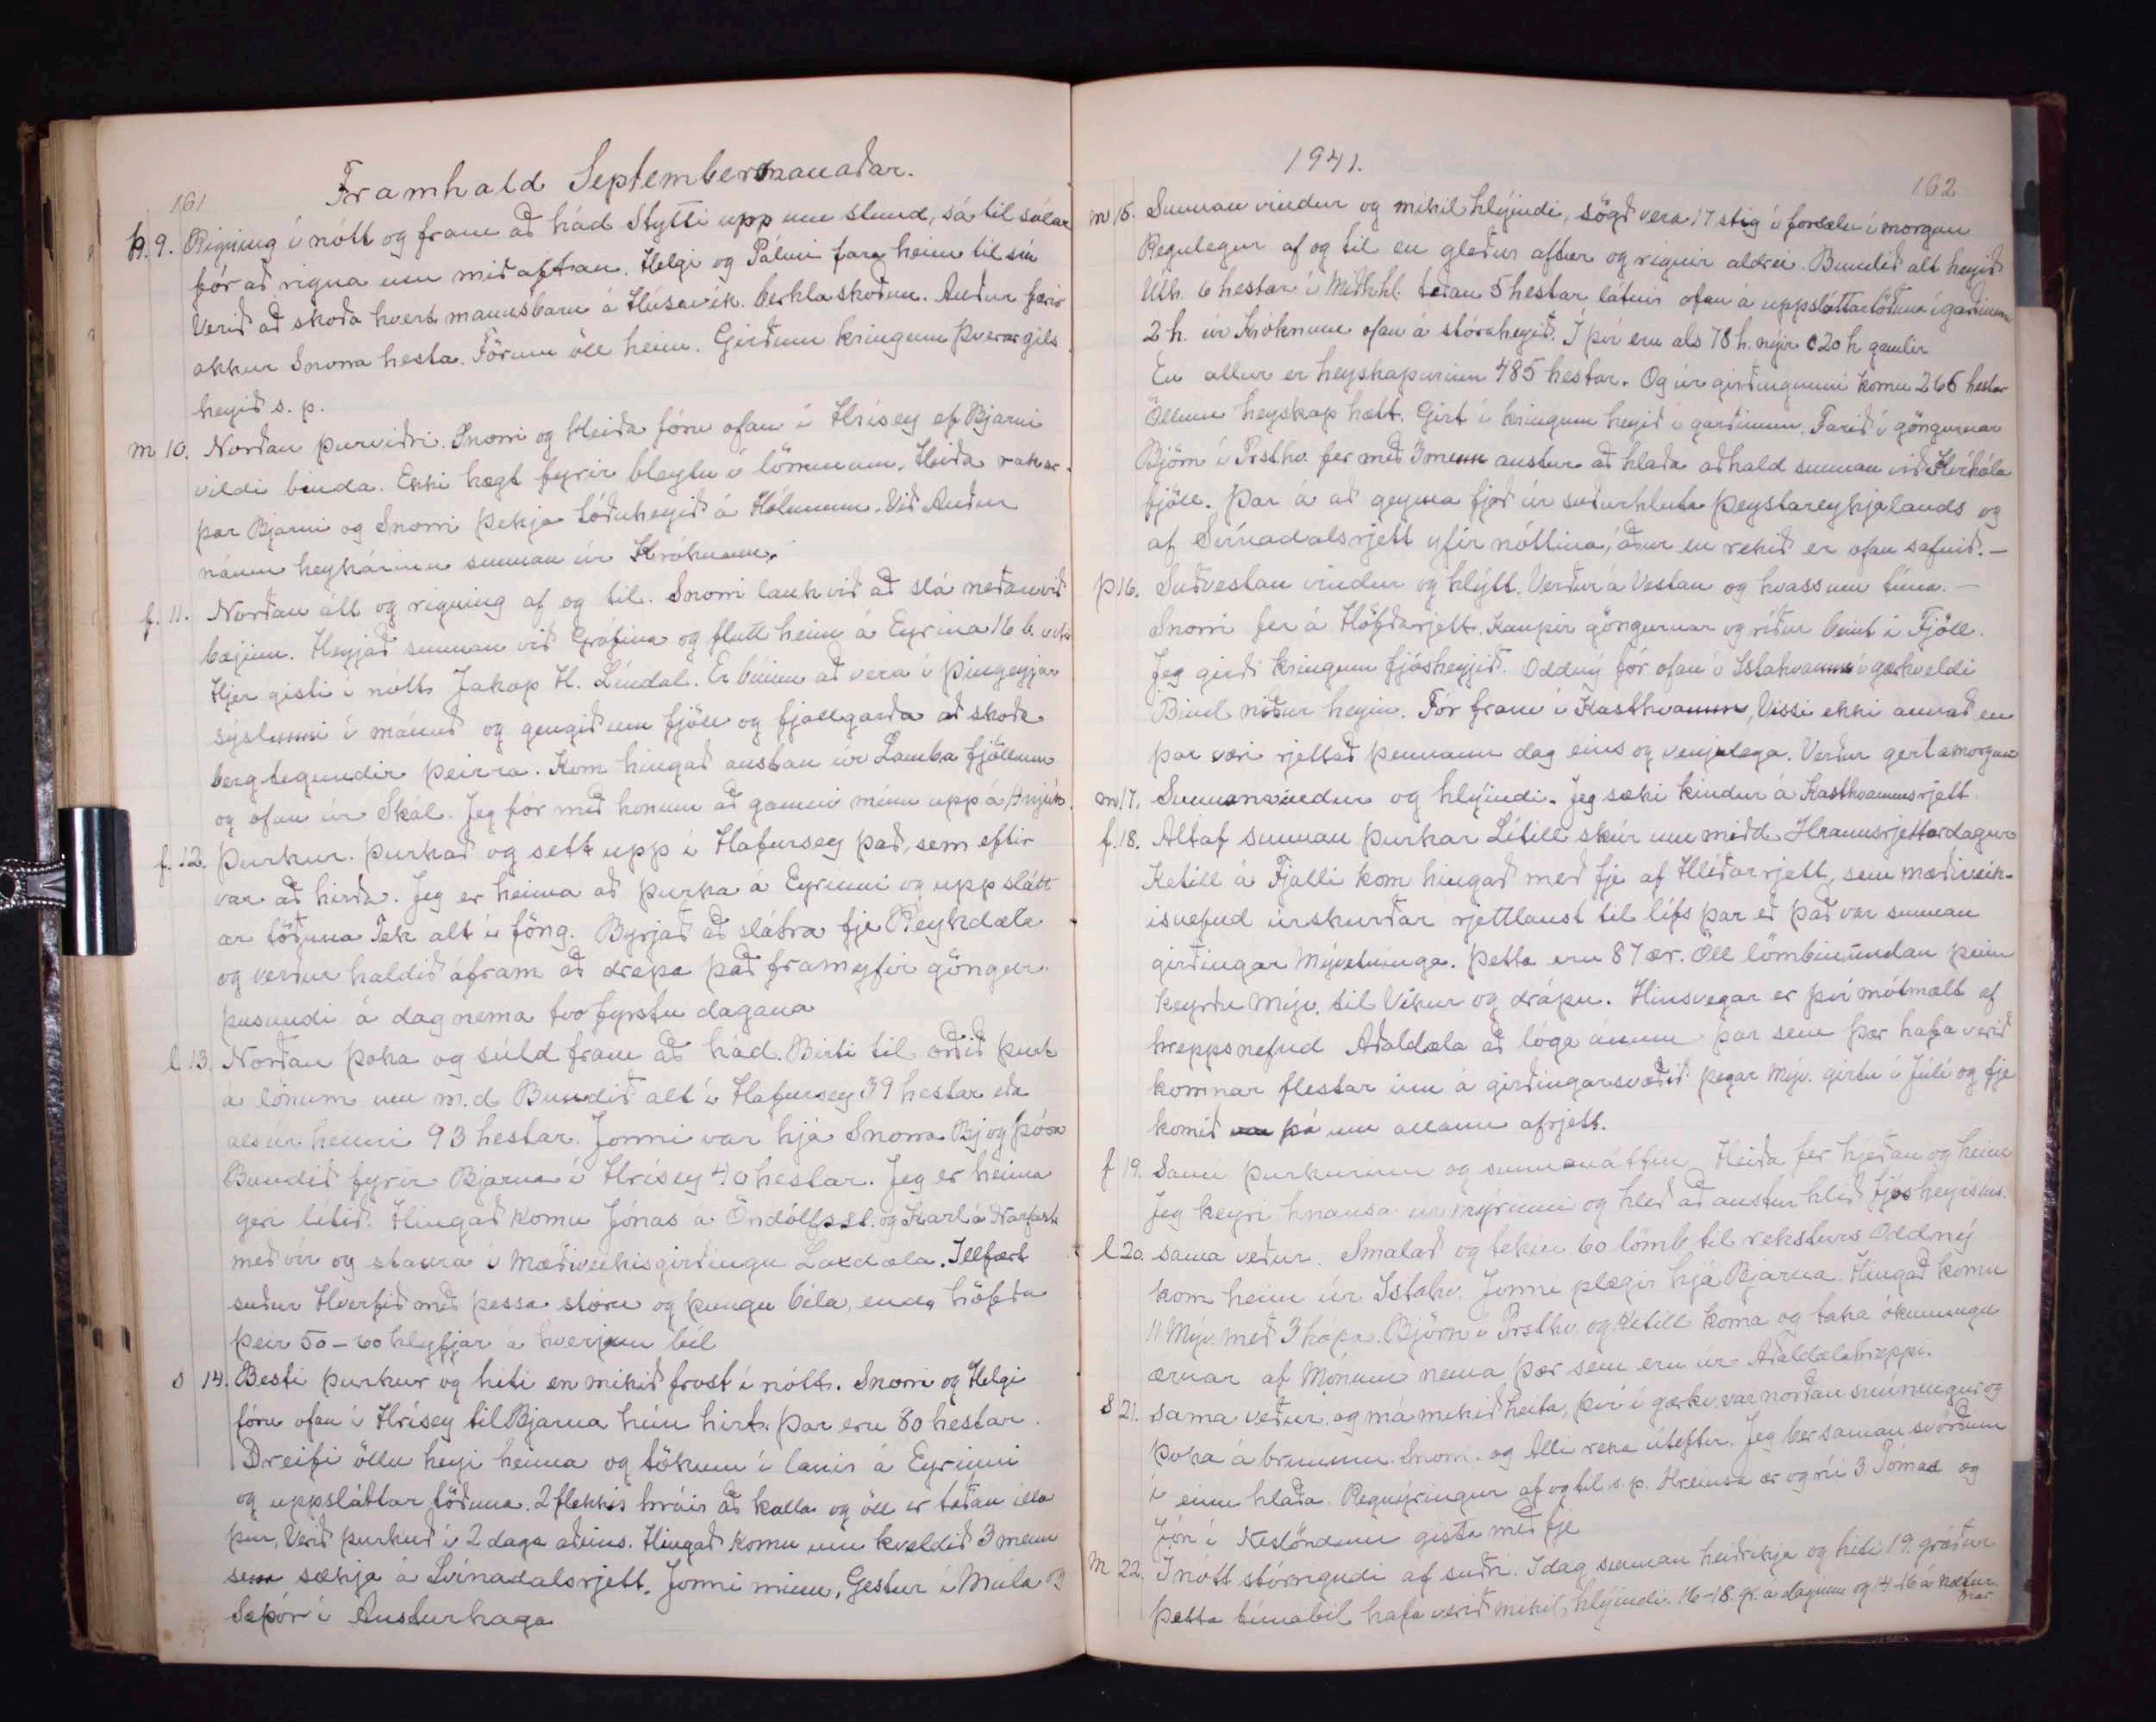 Framhald Septembermanaðar.
161
þ. 9. Rigning í nótt og fram að hád Stytti upp um stund, sá til sólar
fór að rigna um miðaftan. Helgi og Pálmi fara heim til sín
Verið að skoða hvert mannsbarn á Húsavík. berklaskoðun. Auður færir
okkur Snorra hesta. Förum öll heim. Girðum kringum Þverárgils
heyið s. p.
m 10. Norðan þurviðri. Snorri og Heiða fóru ofan í Hrísey ef Bjarni
vildi binda. Ekki hægt fyrir bleytu í lönunum. Heiða rakar
þar Bjarni og Snorri þekja töðuheyið á Hólmum. Við Auður
náum heyhárinu sunnan úr Króknum.
f. 11. Norðan átt og rigning af og til. Snorri lauk við að slá neðanvið
bæjinn. Heyjað sunnan við Grófina og flutt heim á Eyrina 16 b.
Hjer gisti í nótt Jakop H. Líndal. Er búinn að vera í Þingeyjar
sýslunni í mánuð og gengið um fjöll og fjallgarða að skoða
bergtegundir þeirra. Kom hingað austan úr Lambafjöllum
og ofan úr Skál. Jeg fór með honum að gamni mínu upp á Hnjúk.
f. 12. Þurkur. Þurkað og sett upp í Hafursey það, sem eftir
var að hirða. Jeg er heima að þurka á Eyrinni og uppslátt
ar töðuna Tek alt í föng. Byrjað að slátra fje Reykdæla
og verður haldið áfram að drepa það framyfir göngur.
þusundi á dag nema tvo fyrstu dagana
l 13. Norðan þoka og súld fram að hád. Birti til orðið þurt
á lönum um m.d Bundið alt í Hafursey 39 hestar eða
als úr henni 93 hestar. Jonni var hjá Snorra Bj og Þóra
Bundið fyrir Bjarna í Hrísey 40 hestar. Jeg er heima
geri lítið. Hingað komu Jónas á Öndólfsst. og Karl á Narfast.
með vír og staura í Mæðiveikisgirðingu Laxdæla. Illfært
suður Hverfið með þessa stóru og þungu bíla, enda höfðu
þeir 50-60 klyfjar á hverjum bíl
s 14. Besti þurkur og hiti en mikið frost í nótt. Snorri og Helgi
fóru ofan í Hrísey til Bjarna hún hirt. Þar eru 80 hestar.
Dreifi öllu heyi heima og tökum í lanir á Eyrinni
og uppsláttar töðuna. 2 flekkir hráir að kalla og öll er taðan illa
þur, Verið þurkuð í 2 daga aðeins. Hingað komu um kveldið 3 menn
sem sækja á Svínadalsrjett. Jonni minn, Gestur í Múla og
Sæþór í Austurhaga
1941.
162
m 15. Sunnan vindur og mikil hlýindi, sögð vera 17 stig í forsælu í morgun
Regulegur af og til en gleður aftur og rignir aldrei. Bundið alt heyið
Útk. 6 hestar í Miðhkl. taðan 5 hestar látnir ofan á uppsláttartöðuna í garðinum
2 h. úr Króknum ofan á stóraheyið. Í því eru als 78 h. nýir c 20 h gamlir
En allur er heyskapurinn 485 hestar. Og úr girðingunni komu 266 hestar
Öllum heyskap hætt. Girt í kringum heyið í garðinum. Farið í göngurnar
Björn í Prsthv. fer með 3 menn austur að hlaða aðhald sunnan við Kvíhóla
fjöll. Þar á að geyma fjeð úr suðurhluta Þeystareykjalands og
af Svínadalsrjett yfir nóttina, áður en rekið er ofan safnið.—
þ 16. Suðvestan vindur og hlýtt. Verður á Vestan og hvass um tíma.—
Snorri fer á Höfðarjett. Kaupir göngurnar og ríður beint í Fjöll.
Jeg girði kringum fjósheyið. Oddný fór ofan í Ystahvamm í gærkveldi
Bind niður heyin. Fór fram í Kasthvamm, Vissi ekki annað en
þar væri rjettað þennann dag eins og venjulega. Verður gert á morgun
m 17. Sunnanvindur og hlýindi. Jeg sæki kindur á Kasthvammsrjett
f. 18. Altaf sunnan þurkar Lítill skúr um midd Hraunsrjettardagur
Ketill á Fjalli kom hingað með fje af Hlíðarrjett, sem mæðiveik-
isnefnd úrskurðar rjettlaust til lífs þar eð það var sunnan
girðingar Mývetninga. Þetta eru 87 ær. Öll lömbin undan þeim
keyrðu Mýv. til Víkur og drápu. Hinsvegar er því mótmælt af
hreppsnefnd Aðaldæla að lóga ánum þar sem þær hafa verið
komnar flestar inn á girðingarsvæðið þegar Mýv. girtu í Júlí og fje
komið þá um allann afrjett.
f 19. Sami þurkurinn og sunnanáttin Heiða fer hjeðan og heim
Jeg keyri hnausa úr mýrinni og hleð að austurhlið fjósheyisins.
l 20. sama veður. Smalað og tekin 60 lömb til reksturs Oddný
kom heim úr Ystahv. Jonni plægir hjá Bjarna. Hingað komu
11 Mýv. með 3 hópa. Björn í Prsthv. og Ketill koma og taka ókunnugu
ærnar af Mónum nema þær sem eru úr Aðaldælahreppi.
S 21. sama veður. og má mikið heita, því í gærkv. var norðan snúningur og
þoka á brúnum. Snorri. og Alli reka úteftir. Jeg ber saman svörðinn
í einn hlaða. Regnýringur af og til s.p. Hreinsa ær og rý 3. Tómas og
Jón í Neslöndum gista með fje
M 22. Í nótt stórrigndi af suðri. Í dag sunnan heiðríkja og hiti 19. gráður
Þetta tímabil hafa verið mikil hlýindi. 16-18. gr. á dagana og 14-16 á nætur.
nar